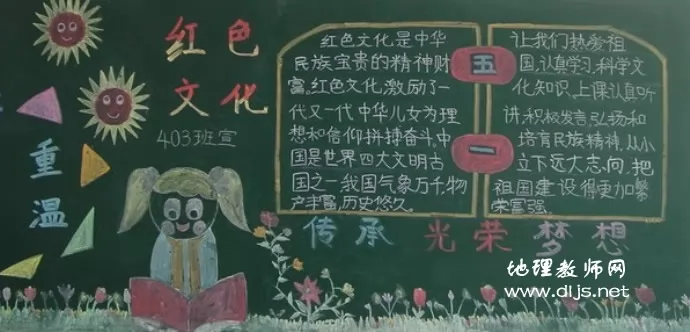 红色
文化
403班宣
重
温
红色文化是中华
民族宝贵的精神财
富,红色文化,激励了一
代又一代中华儿女为理
想和信仰拼搏奋斗,中
国是世界四大文明古
国之一我国气象万千,物
产丰富,历史悠久
五
一
让我们热爱祖
国,认真学习,科学文
化知识,上课认真听
讲,积极发言,弘扬和
培育民族精神,从小
立下远大志向,把
祖国建设得更加繁
荣富强.
传承光荣梦想
地理教师网
www.dljs.net